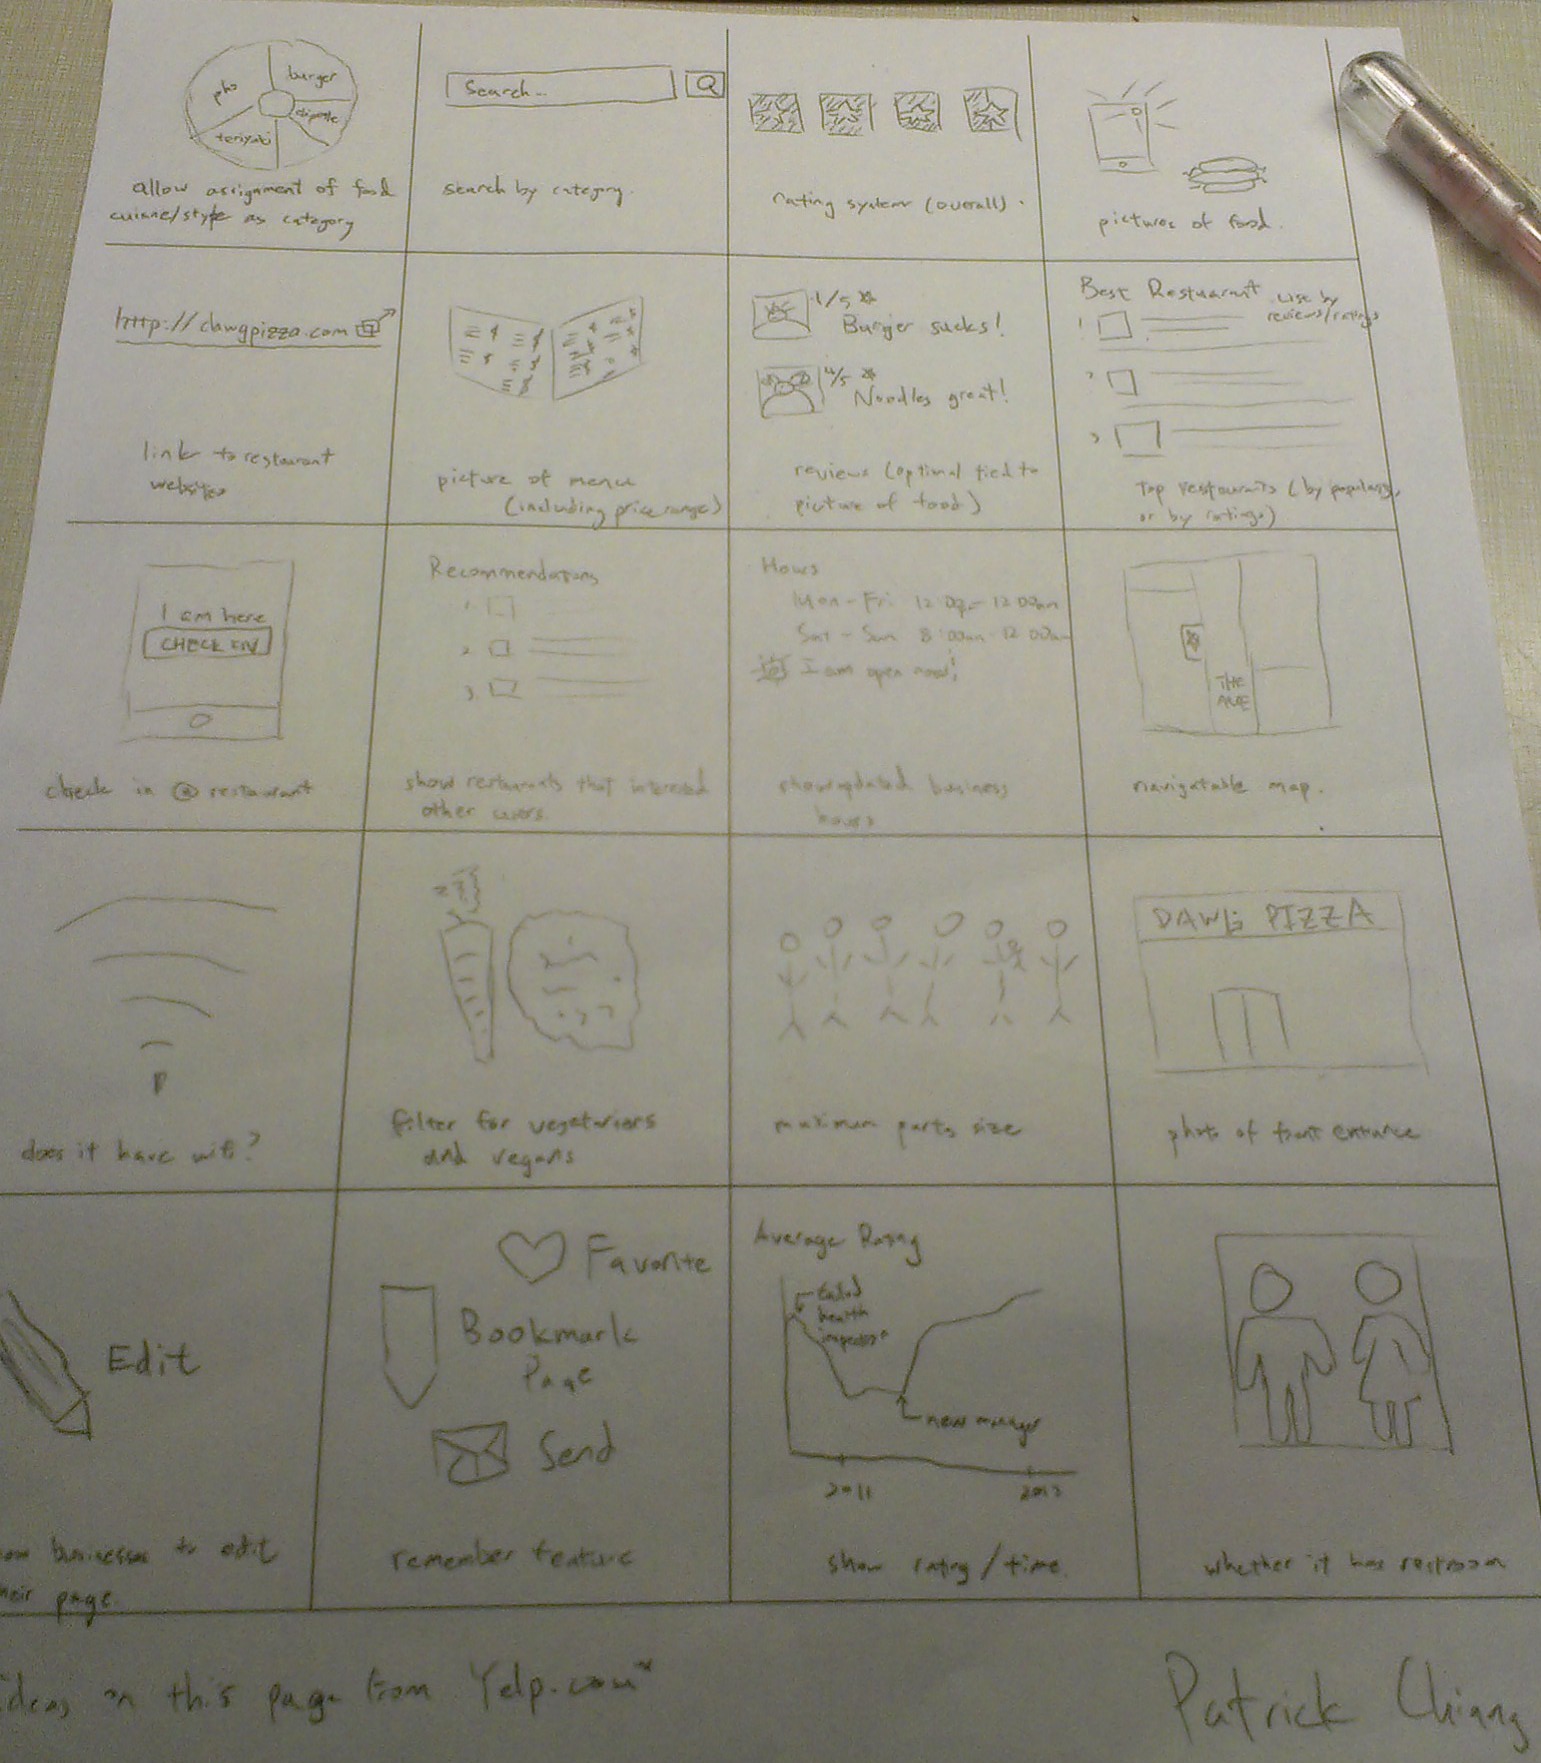 pho
burger
teriyaki
allow assignment of food
cuisine/style as category
Search..
search by category.
rating system (overall).
pictures of food.
http://dawgpizza.com
link to restaurant
websites
picture of menu
(including price range)
1/5
Burger sucks!
4/5
Noodles great!
reviews (optional tied to
picture of food)
Best Restuarant
List by
reviews/ratings
1
2
3
top restaurants (by popularity,
or by ratings)
I am here
CHECK IN
check in @ restaurant
Recommendations
1.
2
3
show restaurants that interested
other users
Hours
Mon-Fri 12:00p-12:00am
Sat-Sun 8:00am-12:00am
I am open now!
show updated business
hours
THE
AVE
navigatable map.
does it have wifi?
filter for vegetarians
and vegans
maximum party size
DAWG PIZZA
photo of front entrance
Edit
businesses to edit
page.
Favorite
Bookmark
Page
Send
remember feature
Average Rating
failed
health
inspection
new manager
2011
show rating/time.
whether it has restroom
ideas on this page from Yelp.com
Patrick Chiang